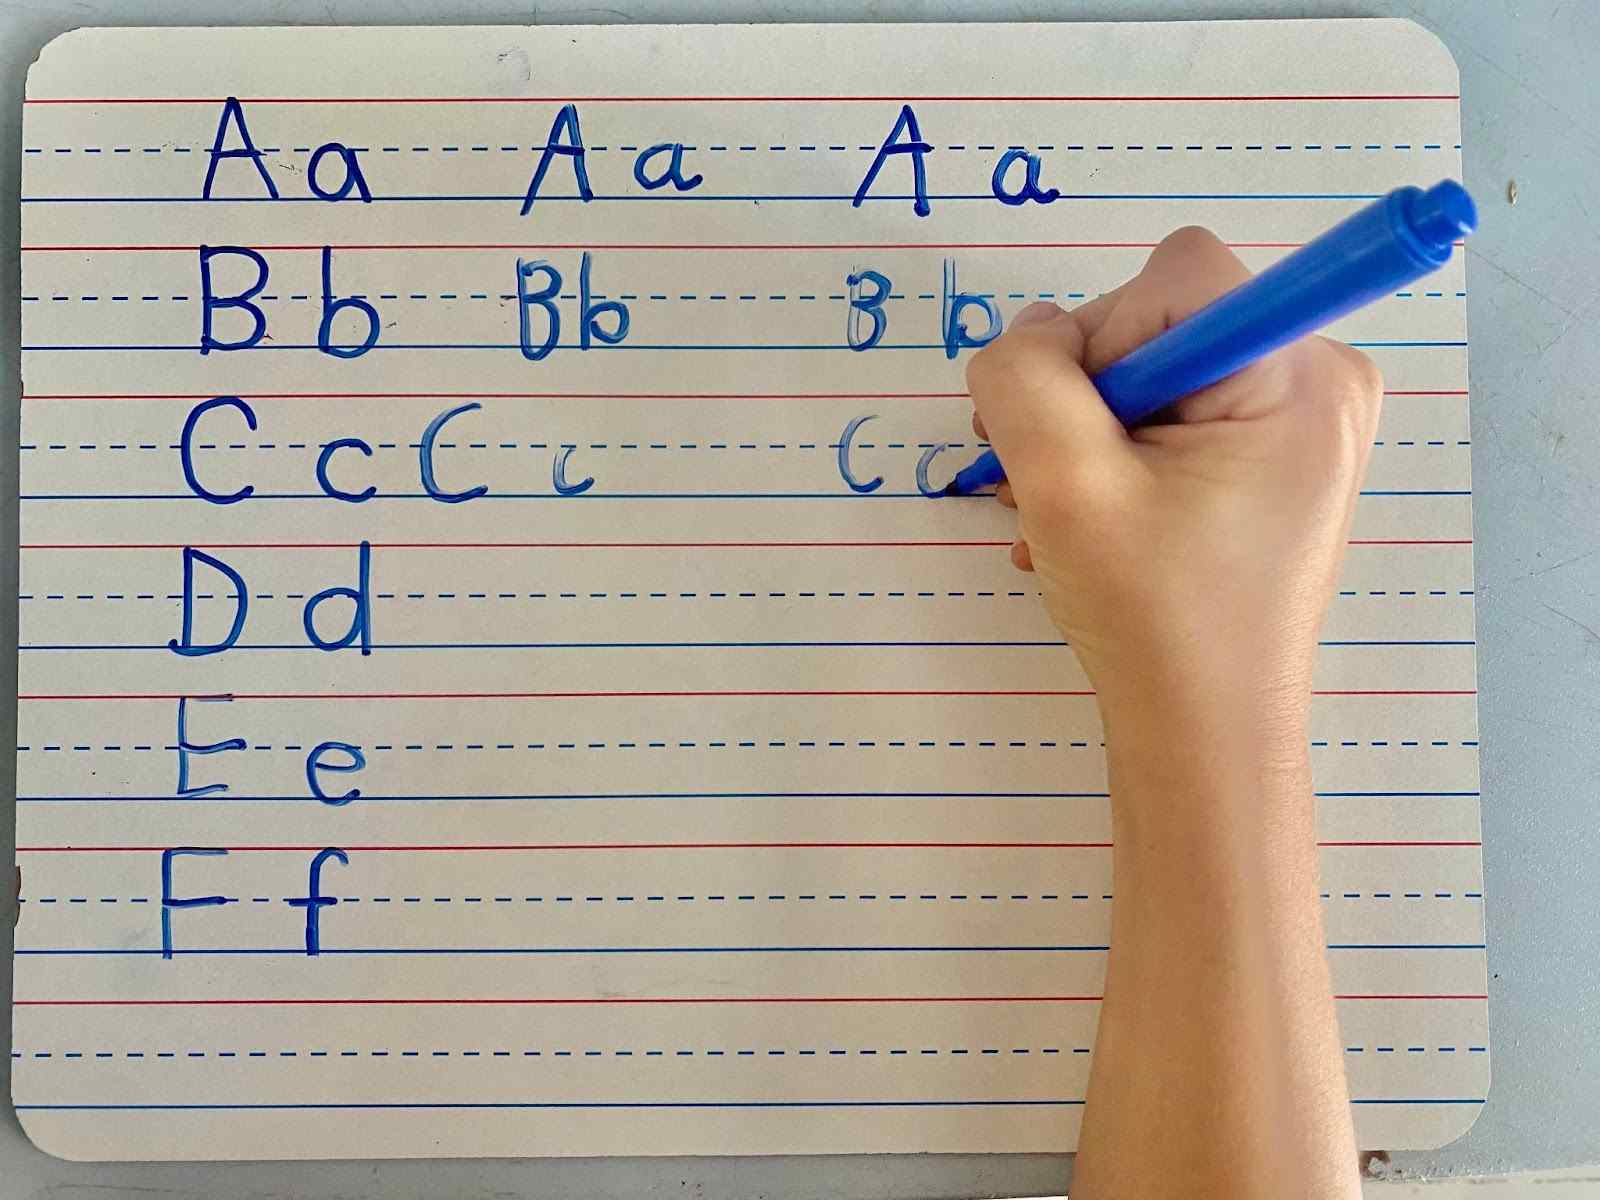 A a A a A a
B b B b B b
C c C c C c
D d
E e
F f